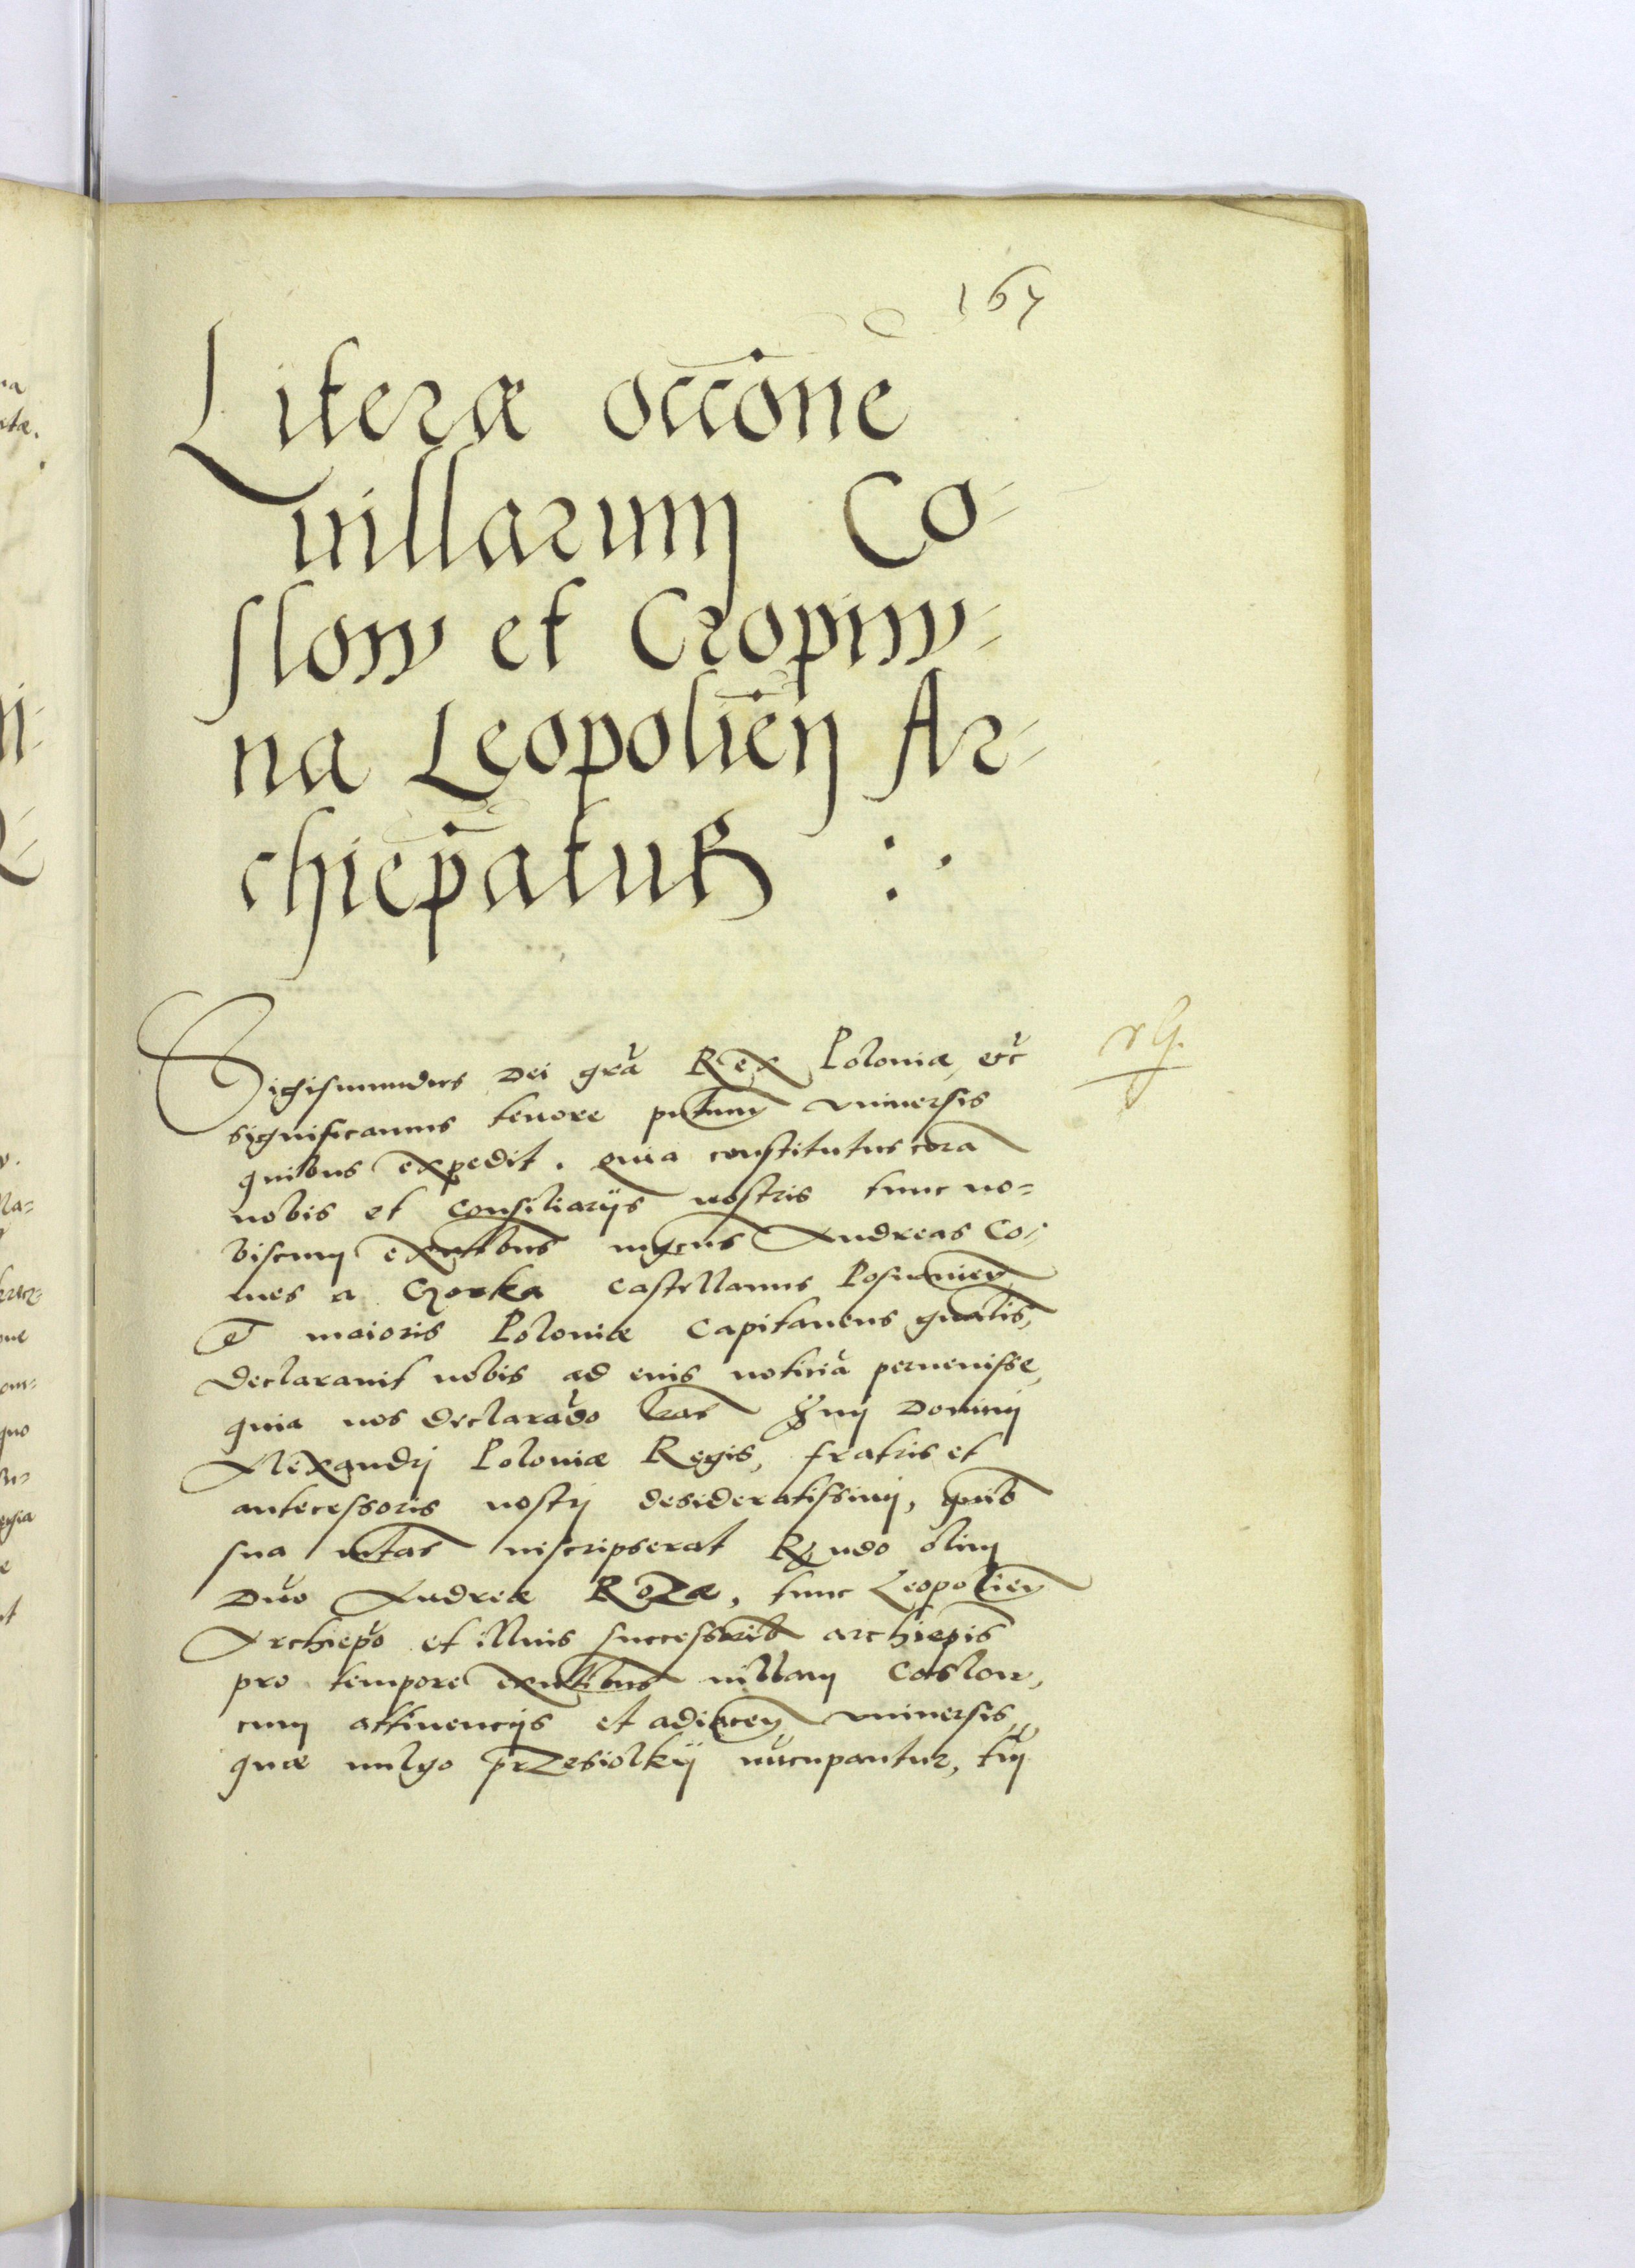 167
Literæ occōne
uillarum Co-
slow et Cropiw-
na Leopolieñ Ar-
chiep̄atus :·
Sigismundus Dei gr̄a Rex Poloniæ, etc̄
significamus tenore pn̄tium vniuersis
quibus expedit. quia constitutus corā
nobis et Consiliarijs nostris tunc no=
biscum exn̄tibus mgcus Andreas Co-
mes a Gorka Castellanus Posnanien̄
et maioris Poloniæ Capitaneus gn̄alis,
declarauit nobis ad eius noticiā peruenisse,
quia nos declarādo l̄ras Sermi Domini
Alexandri Poloniæ Regis, fratris et
antecessoris nostri desideratissimi, quib
sua mtas inscripserat Rndo olim
Dno Andreæ Rozæ, tunc Leopolien̄
Archiep̄o et illius successorib archiepis
pro tempore exn̄tibus uillam Coslow,
cum attinencijs et adiacen̄ vniuersis,
quæ uulgo przesiolkij nūcupantur, tm̄